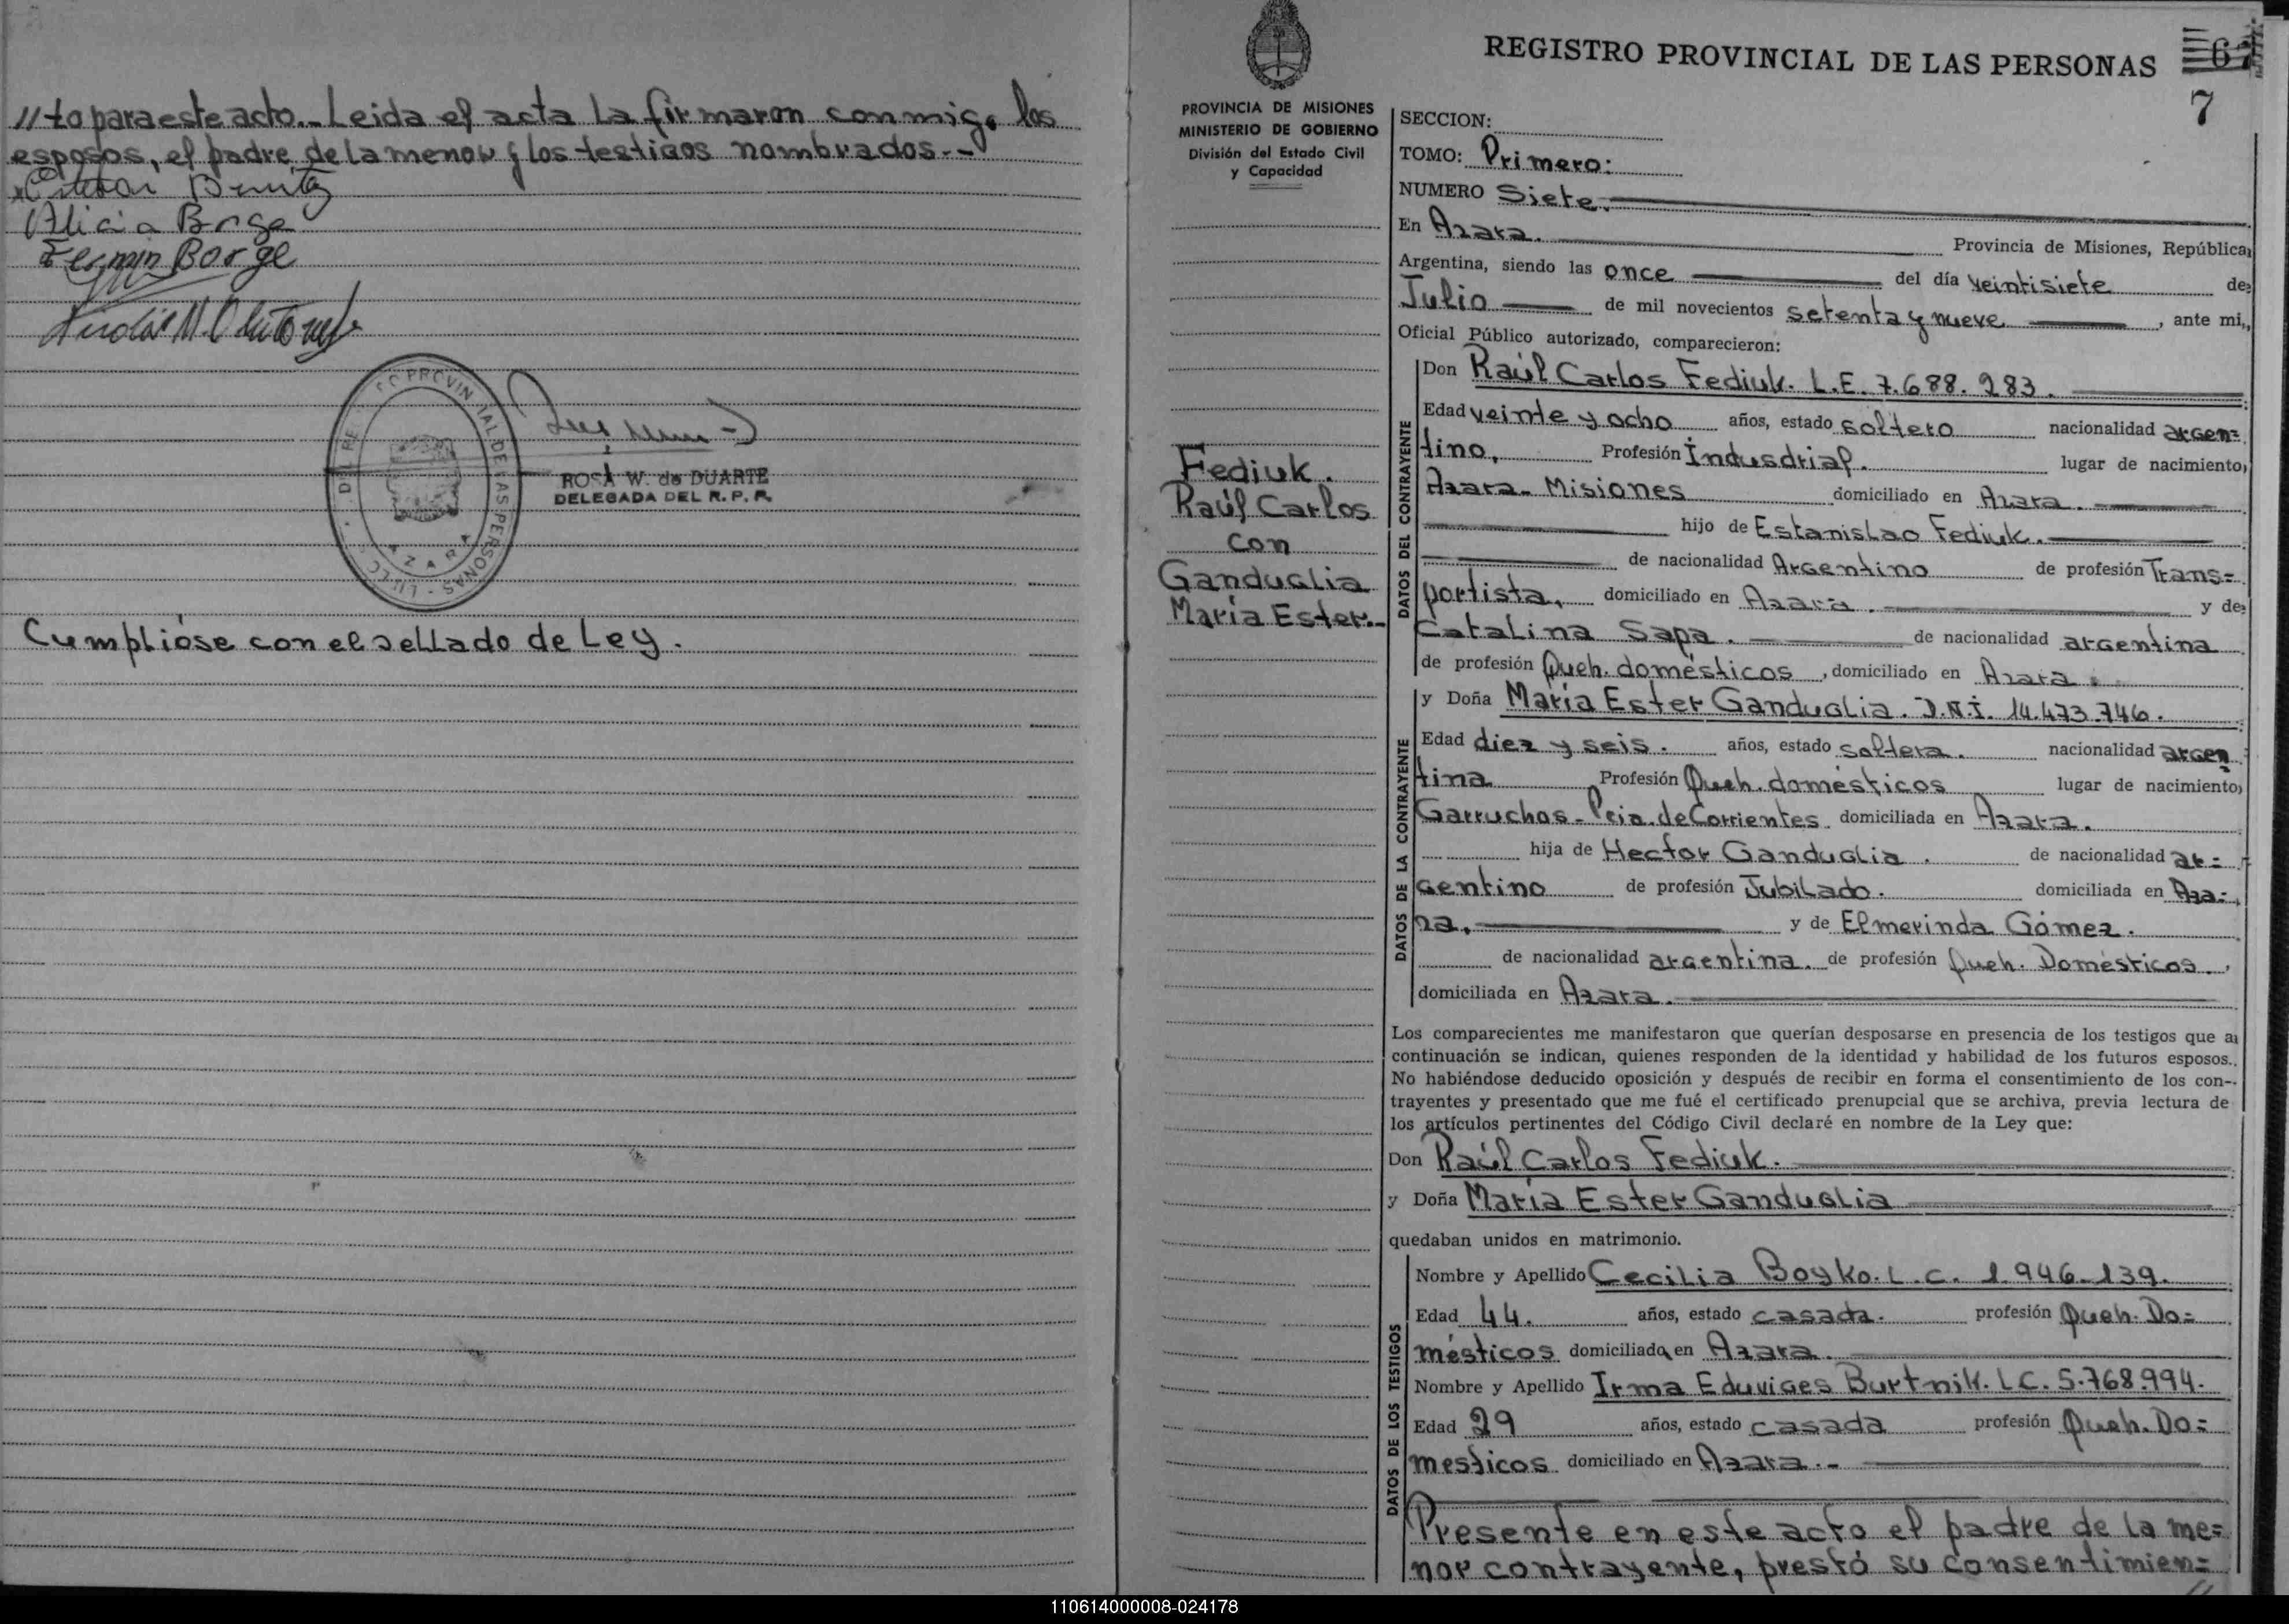 //to para este acto.- Leida el acta la firmaron conmigo los
esposos, el padre de la menor y los testigos nombrados.--
Benitz
Alicia Borge
Fermin Borge
ROSA W. de DUARTE
DELEGADA DEL R. P. P.
AZARA
Cumplióse con el sellado de Ley.
REGISTRO PROVINCIAL DE LAS PERSONAS
7
PROVINCIA DE MISIONES
MINISTERIO DE GOBIERNO
División del Estado Civil
y Capacidad
Fediuk.
Raúl Carlos
con
Ganduglia
María Ester.-
SECCION:
TOMO: Primero:
NUMERO Siete.
En Azara. Provincia de Misiones, República
Argentina, siendo las once del día veintisiete de
Julio de mil novecientos setenta y nueve, ante mi,
Oficial Público autorizado, comparecieron:
DATOS DEL CONTRAYENTE
Don Raúl Carlos Fediuk. L.E. 7.688.283.
Edad veinte y ocho años, estado soltero nacionalidad argen=
tino, Profesión Indusdrial. lugar de nacimiento
Azara- Misiones domiciliado en Azara.
hijo de Estanislao Fediuk.
de nacionalidad Argentino de profesión Trans=
portista, domiciliado en Azara. y de
Catalina Sapa. de nacionalidad argentina
de profesión Queh. domésticos, domiciliado en Azara.
DATOS DE LA CONTRAYENTE
y Doña María Ester Ganduglia. D.N.I. 14.473.746.
Edad diez y seis. años, estado soltera. nacionalidad argen
tina Profesión Queh. domésticos lugar de nacimiento
Garruchos- Pcia. de Corrientes. domiciliada en Azara.
hija de Hector Ganduglia. de nacionalidad ar=
gentino de profesión Jubilado. domiciliada en Aza=
ra. y de Elmerinda Gómez.
de nacionalidad argentina. de profesión Queh. Domésticos.,
domiciliada en Azara.
Los comparecientes me manifestaron que querían desposarse en presencia de los testigos que a
continuación se indican, quienes responden de la identidad y habilidad de los futuros esposos.
No habiéndose deducido oposición y después de recibir en forma el consentimiento de los con-
trayentes y presentado que me fué el certificado prenupcial que se archiva, previa lectura de
los artículos pertinentes del Código Civil declaré en nombre de la Ley que:
Don Raúl Carlos Fediuk.
y Doña María Ester Ganduglia
quedaban unidos en matrimonio.
DATOS DE LOS TESTIGOS
Nombre y Apellido Cecilia Boyko. L.C. 1.946.139.
Edad 44. años, estado casada. profesión Queh. Do=
mésticos domiciliada en Azara.
Nombre y Apellido Irma Eduviges Burtnik. L.C. 5.768.994.
Edad 29 años, estado casada profesión Queh. Do=
mesticos domiciliado en Azara.-
Presente en este acto el padre de la me=
nor contrayente, prestó su consentimien=
//
110614000008-024178